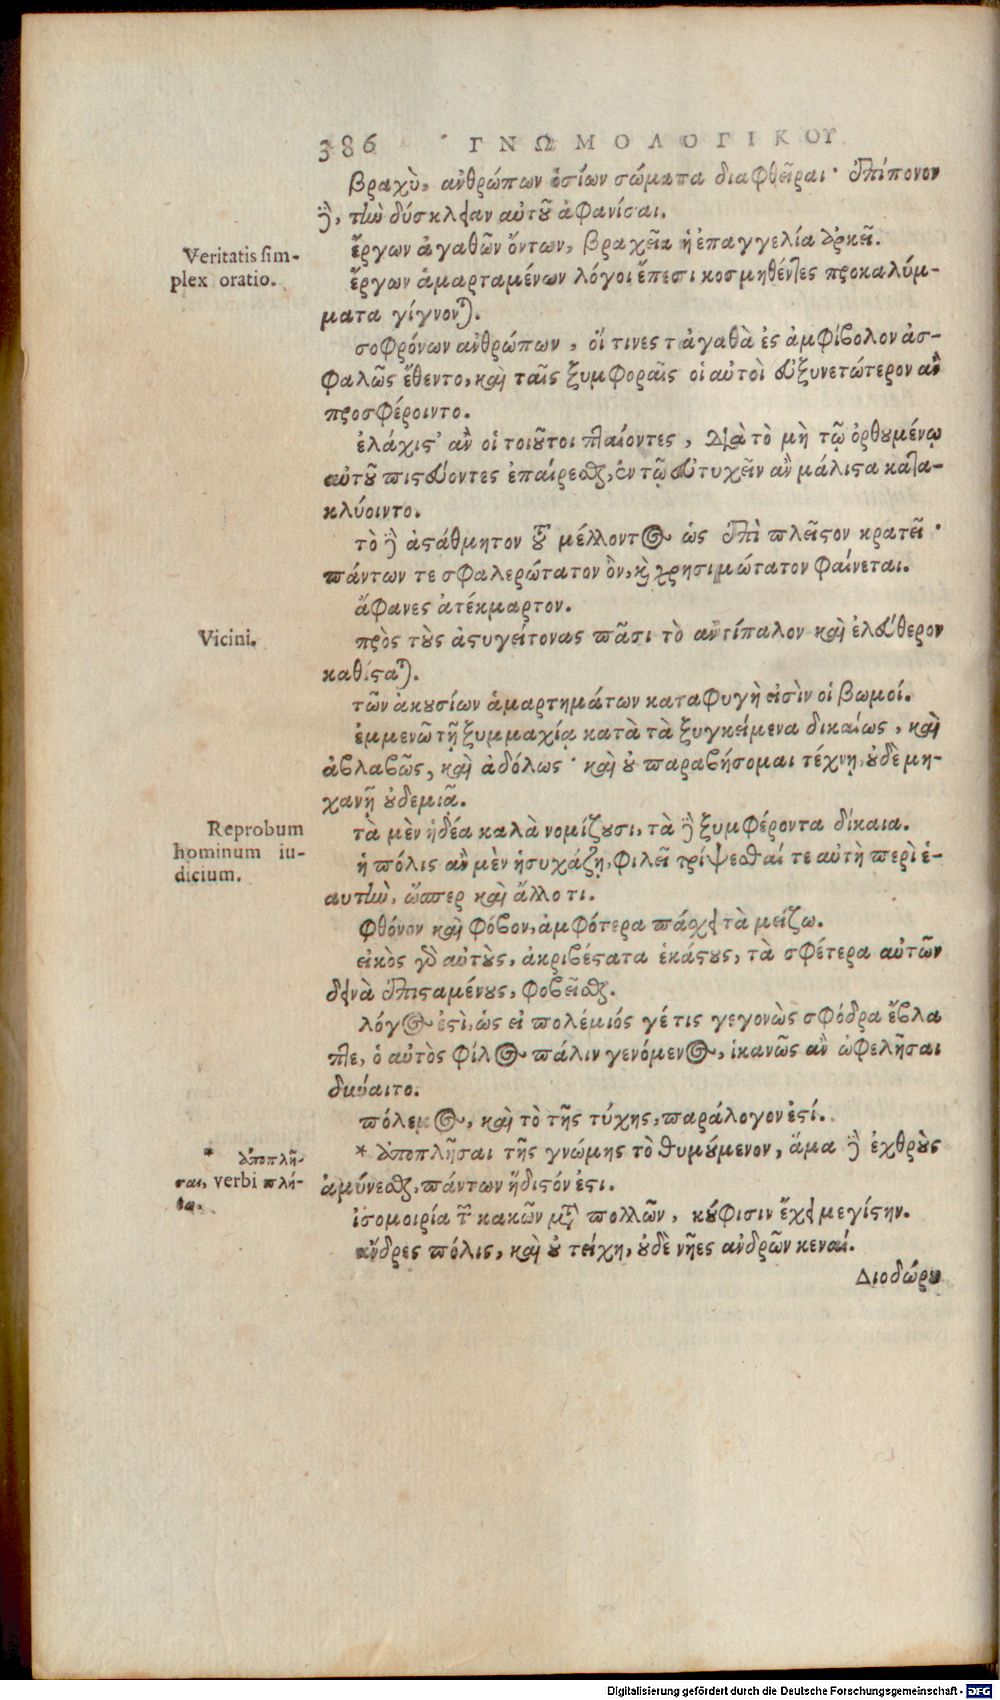 386 ΓΝΩΜΟΛΟΓΙΚΟΥ
βραχὺ, ἀνθρώπων ὁσίων σώματα διαφθεῖραι· ἐπίπονον
δὲ, τὴν δύσκλειαν αὐτοῦ ἀφανίσαι.
ἔργων ἀγαθῶν ὄντων, βραχεῖα ἡ ἐπαγγελία ἀρκεῖ.
Veritatis sim-
plex oratio.
ἔργων ἁμαρταμένων λόγοι ἔπεσι κοσμηθέντες προκαλύμ-
ματα γίγνονται.
σοφρόνων ἀνθρώπων, οἵ τινες τἀγαθὰ ἐς ἀμφίβολον ἀσ-
φαλῶς ἔθεντο, καὶ ταῖς ξυμφοραῖς οἱ αὐτοὶ εὐξυνετώτερον ἂν
προσφέροιντο.
ἐλάχις' ἂν οἱ τοιοῦτοι πταίοντες, διὰ τὸ μὴ τῷ ὀρθουμένῳ
αὐτοῦ πιστεύοντες ἐπαίρεσθαι, ἐν τῷ εὐτυχεῖν ἂν μάλιστα κατα-
κλύοιντο.
τὸ δὲ ἀστάθμητον τοῦ μέλλοντος ὡς ἐπὶ πλεῖστον κρατεῖ·
πάντων τε σφαλερώτατον ὂν, καὶ χρησιμώτατον φαίνεται.
ἄφανες ἀτέκμαρτον.
Vicini.
πρὸς τοὺς ἀστυγείτονας πᾶσι τὸ ἀντίπαλον καὶ ἐλεύθερον
καθίσταται.
τῶν ἀκουσίων ἁμαρτημάτων καταφυγὴ εἰσὶν οἱ βωμοί.
ἐμμενῶ τῇ ξυμμαχίᾳ κατὰ τὰ ξυγκείμενα δικαίως, καὶ
ἀβλαβῶς, καὶ ἀδόλως· καὶ οὐ παραβήσομαι τέχνῃ, οὐδὲ μη-
χανῇ οὐδεμιᾷ.
Reprobum
hominum iu-
dicium.
τὰ μὲν ἡδέα καλὰ νομίζουσι, τὰ δὲ ξυμφέροντα δίκαια.
ἡ πόλις ἂν μὲν ἡσυχάζῃ, φιλεῖ τρίψεσθαί τε αὐτὴ περὶ ἑ-
αυτὴν, ὥσπερ καὶ ἄλλο τι.
φθόνον καὶ φόβον, ἀμφότερα πάσχει τὰ μείζω.
εἰκὸς γὰρ αὐτοὺς, ἀκριβέστατα ἑκάστους, τὰ σφέτερα αὐτῶν
δεινὰ ἐπισταμένους, φοβεῖσθαι.
λόγος ἐστὶ, ὡς εἰ πολέμιός γέ τις γεγονὼς σφόδρα ἔβλα
πτε, ὁ αὐτὸς φίλος πάλιν γενόμενος, ἱκανῶς ἂν ὠφελῆσαι
δύναιτο.
πόλεμος, καὶ τὸ τῆς τύχης, παράλογον ἐστί.
* ἀποπλῆ-
σαι, verbi πλή-
θω.
* ἀποπλῆσαι τῆς γνώμης τὸ θυμούμενον, ἅμα δὲ ἐχθροὺς
ἀμύνεσθαι, πάντων ἥδιστόν ἐστι.
ἰσομοιρία τῶν κακῶν μετὰ πολλῶν, κούφισιν ἔχει μεγίστην.
ἄνδρες πόλις, καὶ οὐ τείχη, οὐδὲ νῆες ἀνδρῶν κεναί.
Διοδώρου
Digitalisierung gefördert durch die Deutsche Forschungsgemeinschaft - DFG